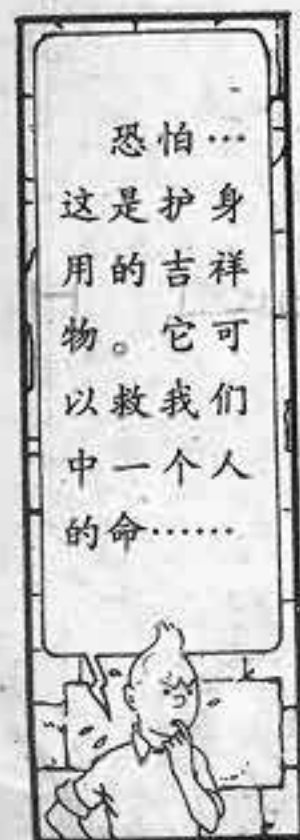 恐怕…
这是护身
用的吉祥
物。它可
以救我们
中一个人
的命……